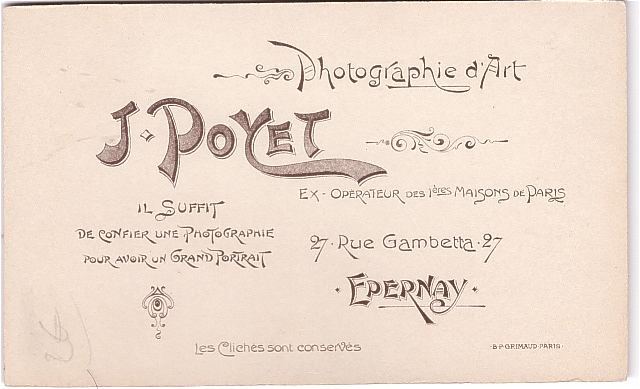 Photographie d'Art
J. POYET
EX - OPÉRATEUR DES 1ères MAISONS DE PARIS
IL SUFFIT
DE CONFIER UNE PHOTOGRAPHIE
POUR AVOIR UN GRAND PORTRAIT
27 · Rue Gambetta · 27
· EPERNAY ·
Les Clichés sont conservés
· B·P·GRIMAUD·PARIS·